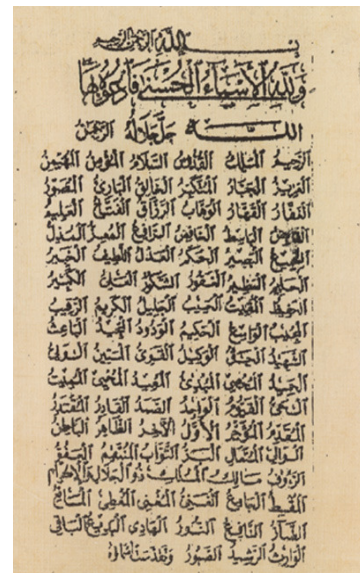 بسم الله الرحمن الرحيم
ولله الأسماء الحسنى فادعوه بها
الله جل جلاله الرحمن
الرحيم الملك القدوس السلام المؤمن المهيمن
العزيز الجبار المتكبر الخالق البارئ المصور
الغفار القهار الوهاب الرزاق الفتاح العليم
القابض الباسط الخافض الرافع المعز المذل
السميع البصير الحكم العدل اللطيف الخبير
الحليم العظيم الغفور الشكور العلي الكبير
الحفيظ المقيت الحسيب الجليل الكريم الرقيب
المجيب الواسع الحكيم الودود المجيد الباعث
الشهيد الحق الوكيل القوي المتين الولي
الحميد المحصي المبدئ المعيد المحيي المميت
الحي القيوم الواحد الصمد القادر المقتدر
المقدم المؤخر الأول الآخر الظاهر الباطن
الوالي المتعال البر التواب المنتقم العفو
الرؤوف مالك الملك ذو الجلال والإكرام
المقسط الجامع الغني المغني المعطي المانع
الضار النافع النور الهادي البديع الباقي
الوارث الرشيد الصبور